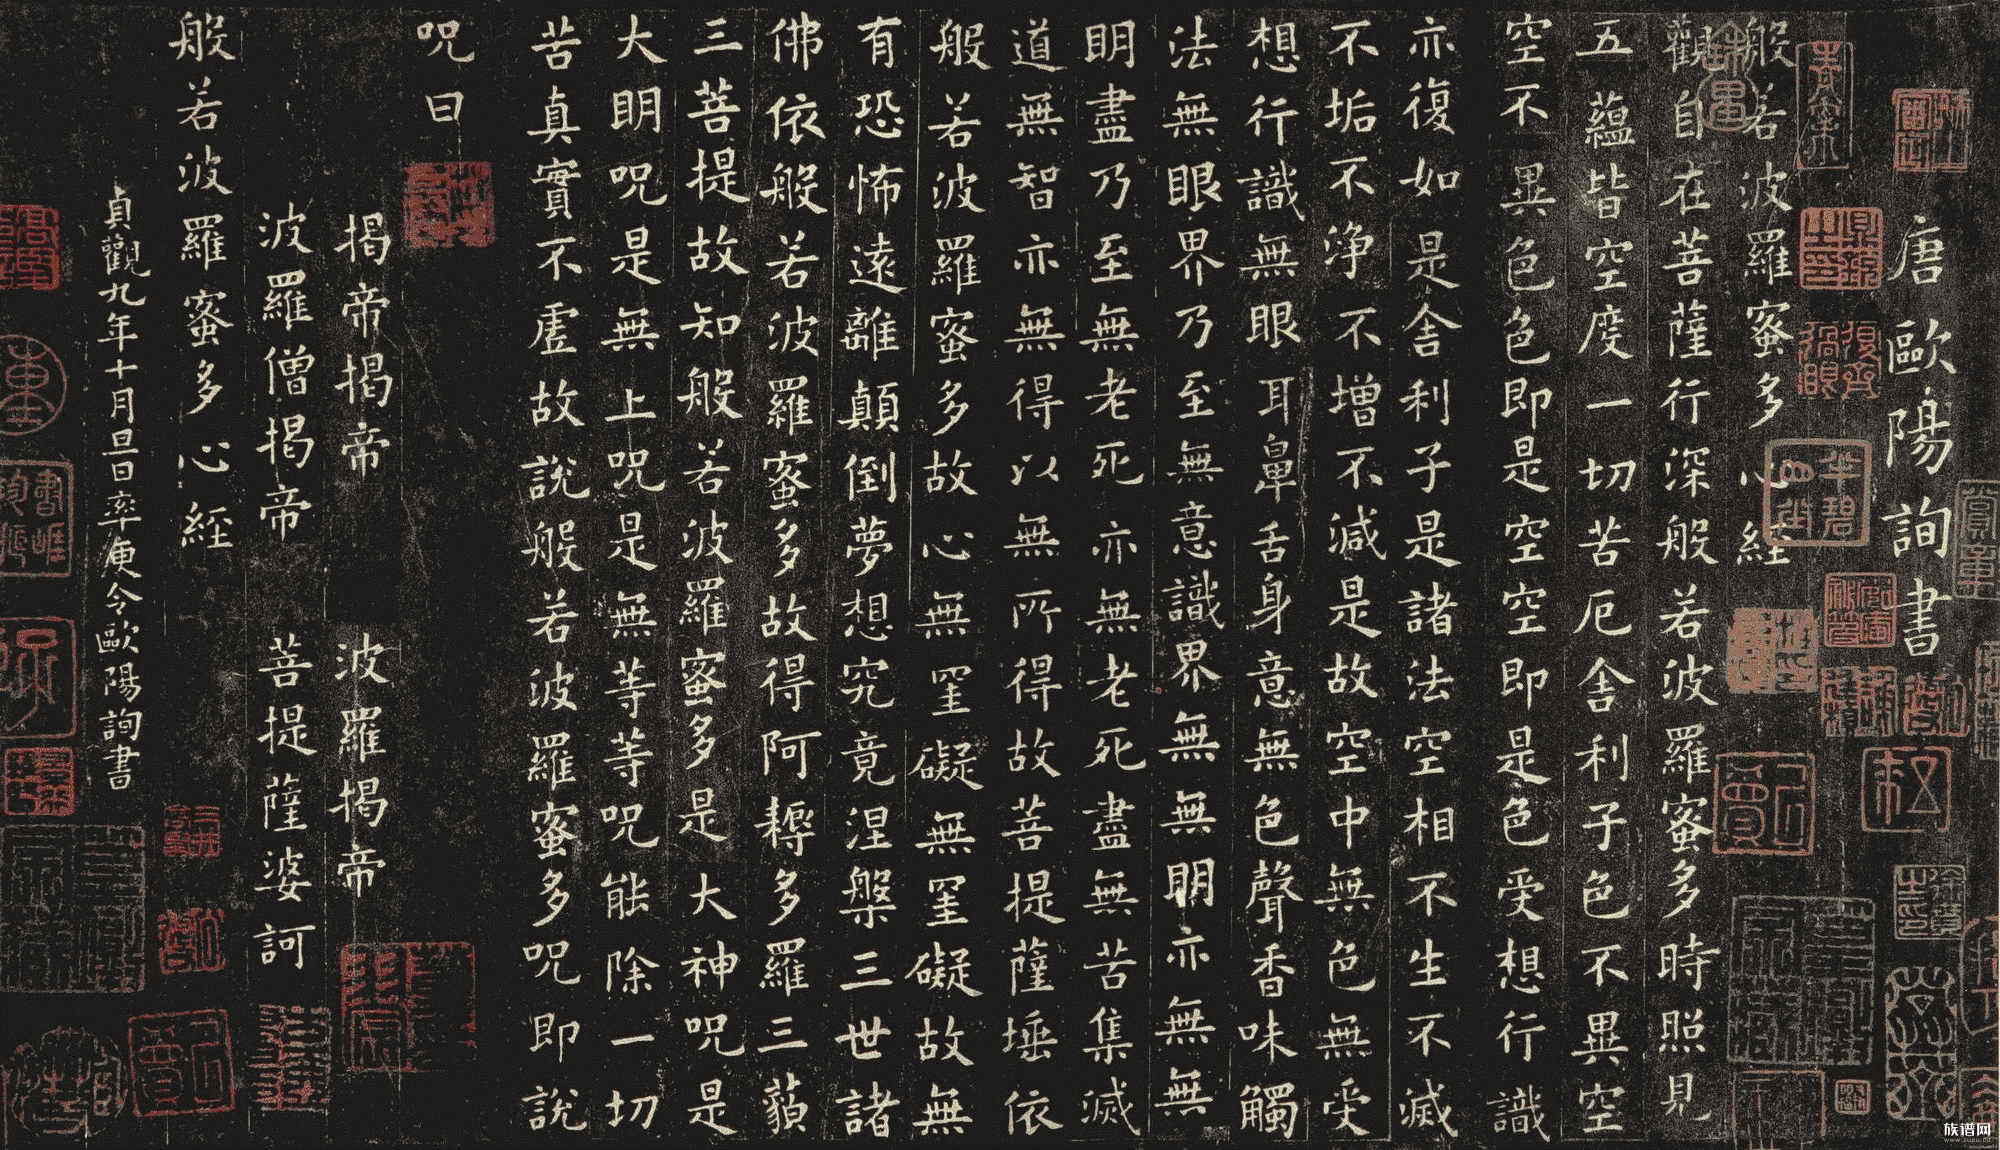 唐歐陽詢書
般若波羅蜜多心經
觀自在菩薩行深般若波羅蜜多時照見
五蘊皆空度一切苦厄舍利子色不異空
空不異色色即是空空即是色受想行識
亦復如是舍利子是諸法空相不生不滅
不垢不淨不增不減是故空中無色無受
想行識無眼耳鼻舌身意無色聲香味觸
法無眼界乃至無意識界無無明亦無無
明盡乃至無老死亦無老死盡無苦集滅
道無智亦無得以無所得故菩提薩埵依
般若波羅蜜多故心無罣礙無罣礙故無
有恐怖遠離顛倒夢想究竟涅槃三世諸
佛依般若波羅蜜多故得阿耨多羅三藐
三菩提故知般若波羅蜜多是大神呪是
大明呪是無上呪是無等等呪能除一切
苦真實不虛故說般若波羅蜜多呪即說
呪曰
揭帝揭帝 波羅揭帝
波羅僧揭帝 菩提薩婆訶
般若波羅蜜多心經
貞觀九年十月旦日率更令歐陽詢書
族谱网